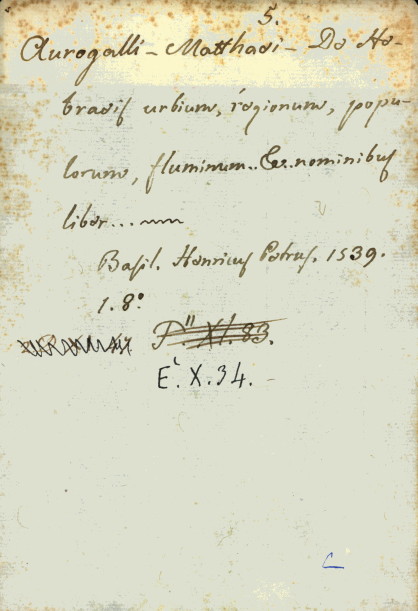 5.
Aurogalli - Matthaei - De He-
braeis urbium, regionum, popu-
lorum, fluminum.. &c. nominibus
liber...
Basil. Henricus Petrus. 1539.
1. 8°
P." XI. 83.
E`. X. 34. -
C